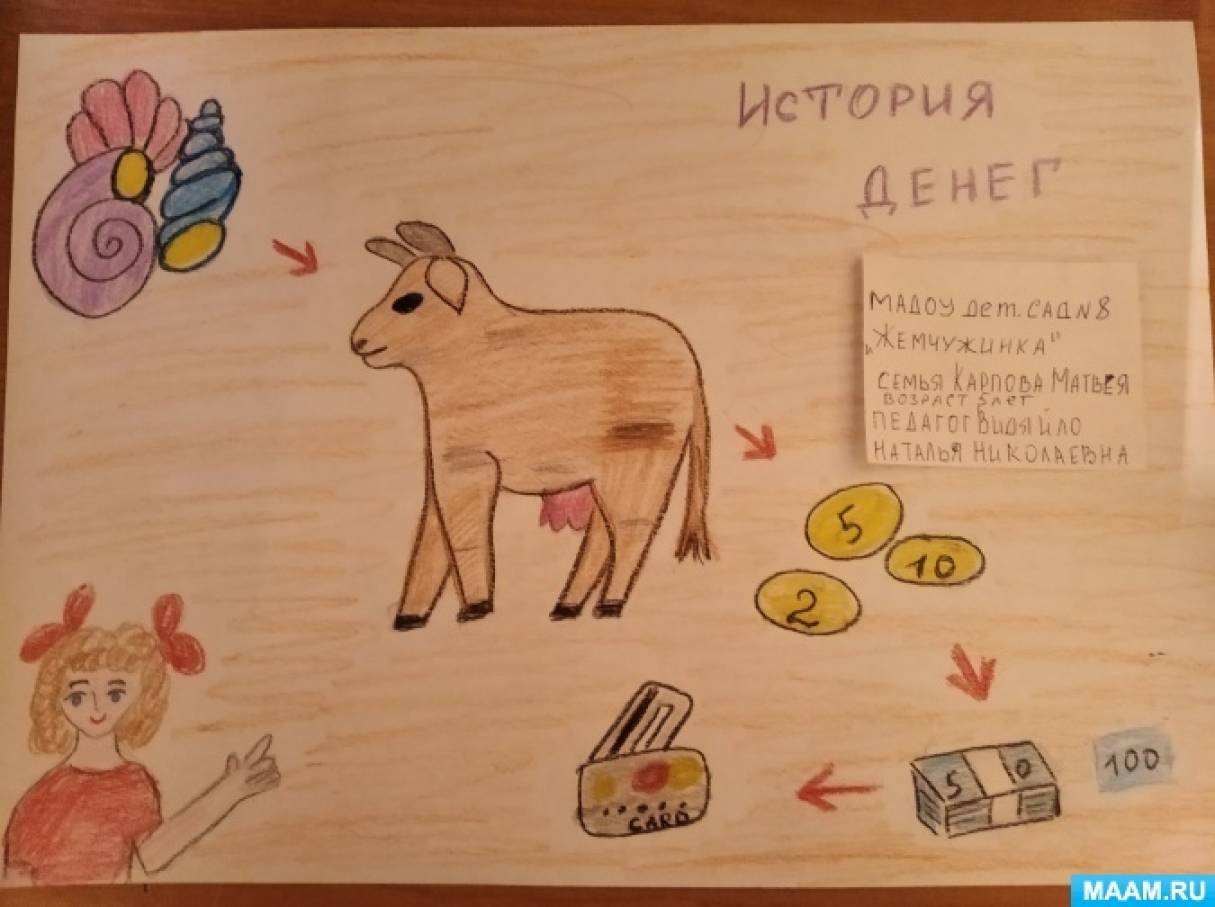 ИСТОРИЯ
ДЕНЕГ
МАДОУ дет. САД N8
"ЖЕМЧУЖИНКА"
СЕМЬЯ КАРПОВА МАТВЕЯ
ВОЗРАСТ 5 ЛЕТ
ПЕДАГОГ ВИДЯЙЛО
НАТАЛЬЯ НИКОЛАЕВНА
5
10
2
5 0
100
CARD
MAAM.RU